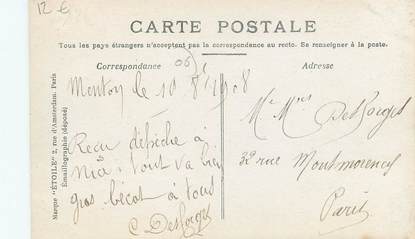 12 €
CARTE POSTALE
Tous les pays étrangers n'acceptent pas la correspondance au recto. Se renseigner à la poste.
Correspondance
Adresse
(06)
Menton le 10 Xbre 1908
Recu dépêche à
Nice tout va bien
gros bécot à tous
C. Desforges
Mr Mme Desforges
32 rue Montmorency
Paris
Marque "ÉTOILE" 2, rue d'Amsterdam. Paris
Émaillographie (déposé)